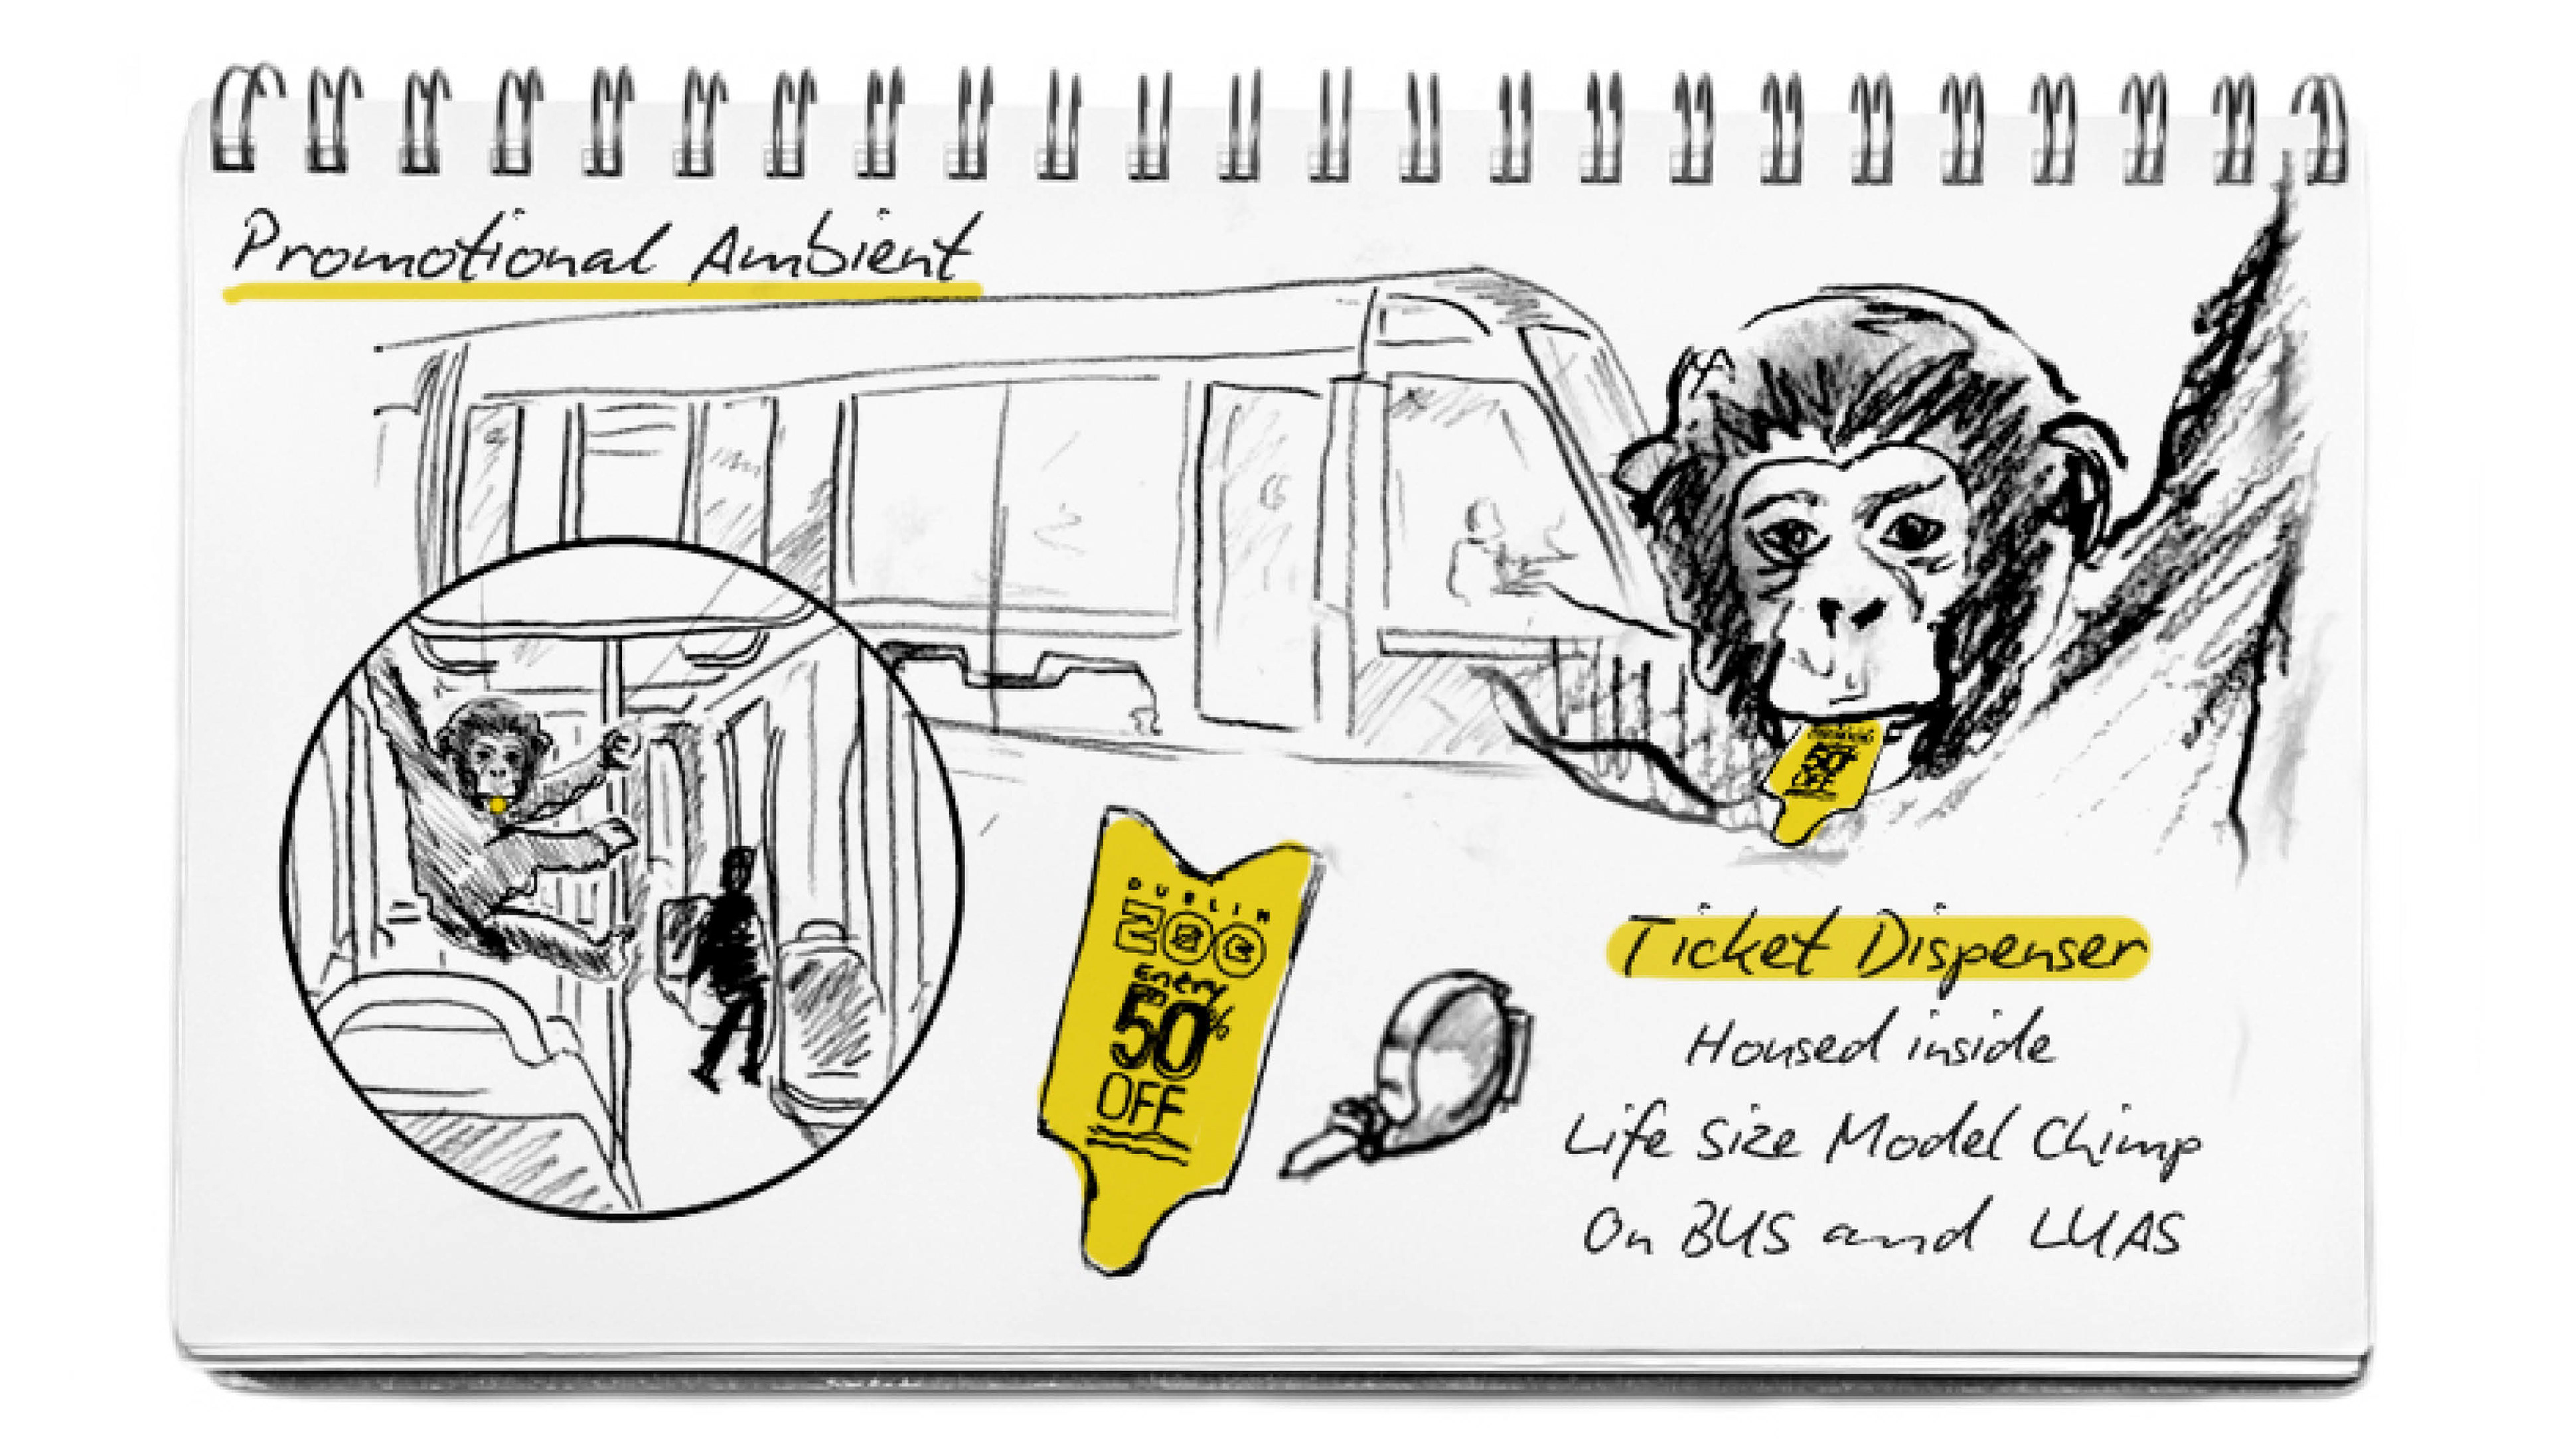 Promotional Ambient
50%
OFF
DUBLIN
ZOO
Entry
50%
OFF
Ticket Dispenser
Housed inside
Life Size Model Chimp
On BUS and LUAS